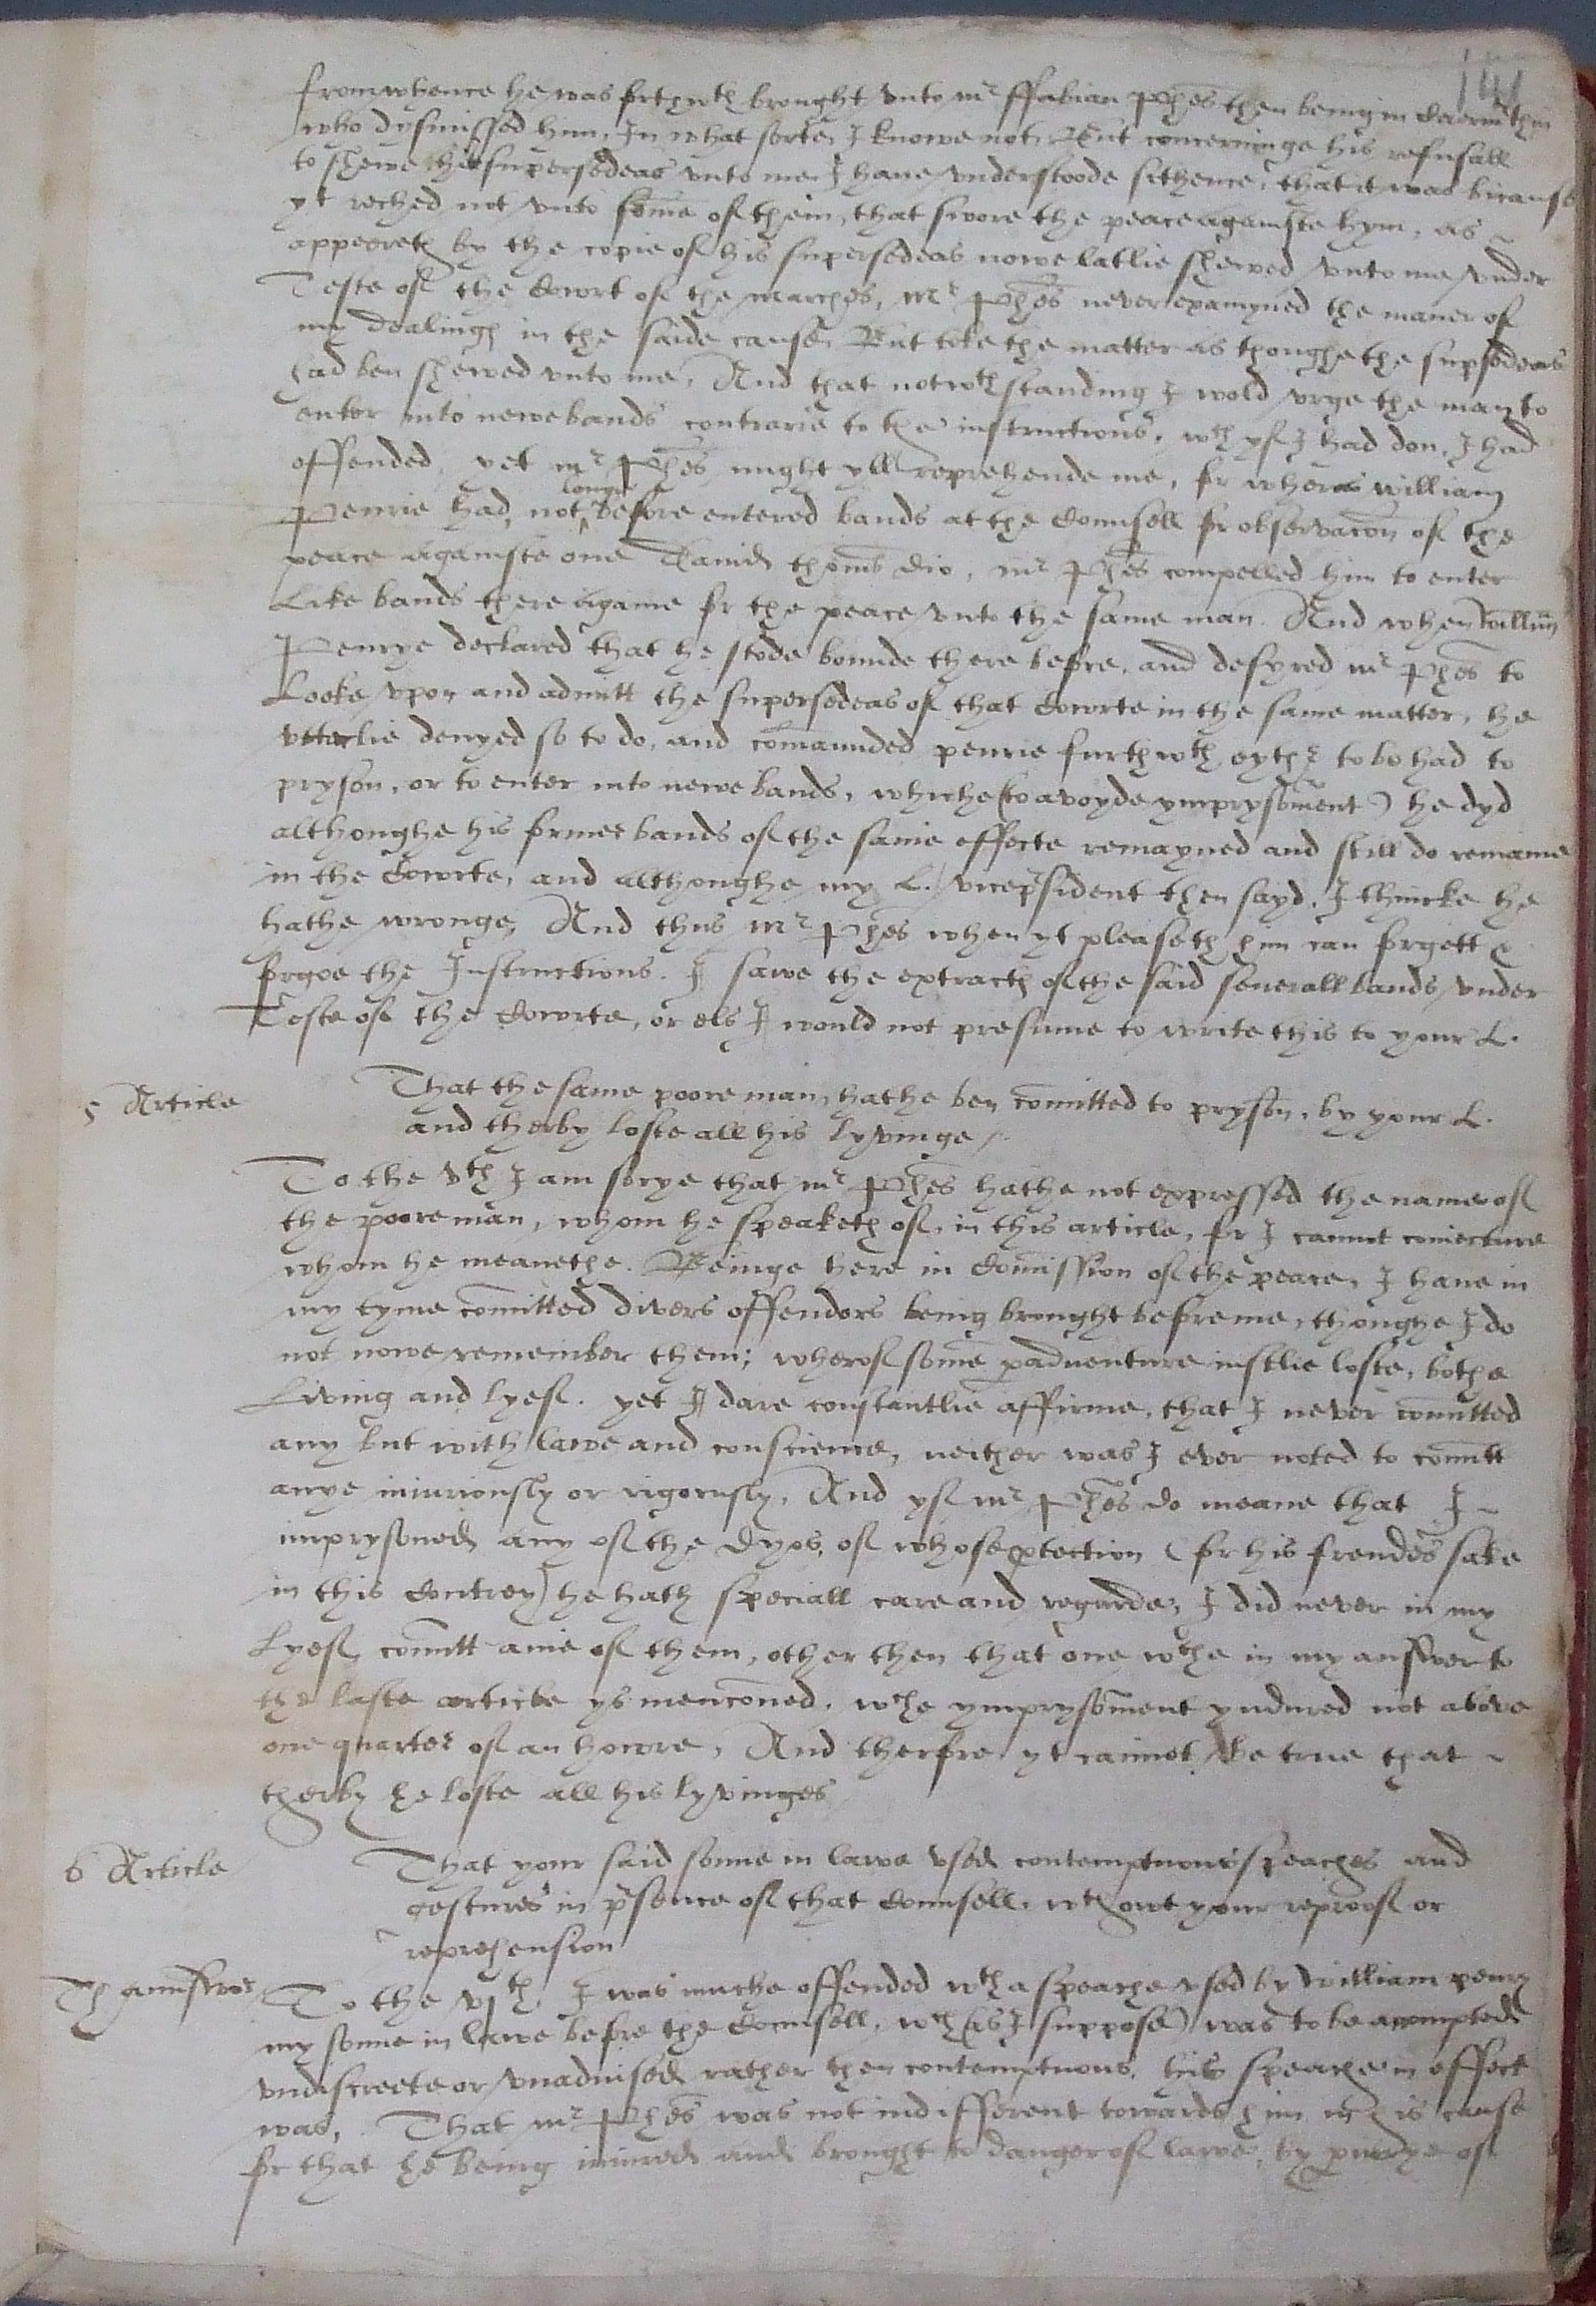 141
from whence he was forthwth brought vnto mr ffabian Phes then being in Caermthin
who dysmissed him, In what sorte, I knowe not, But concerninge his refusall
to shewe his supersedeas vnto me I haue vnderstoode sithence, that it was bicause
yt reched not vnto some of them, that swore the peace againste hym, as ~
appeereth by the copie of his supersedeas nowe latlie shewed vnto me vnder
Teste of the Cowrt of the marches, Mr Phes never examyned the maner of
my dealingh in the saide cause, But toke the matter as thoughe the supsedeas
had ben shewed vnto me, And that notwthstanding I wold vrge the man to
enter into newe bands contrarie to the instructions, wch yf I had don, I had
offended, yet mr Phes might yll reprehende me, for wheras william
Penrie had, not longe before entered bands at the Counsell for observacon of the
peace againste one Dauid thomas dio, mr Phes compelled him to enter
Like bands there againe for the peace vnto the same man. And when willim
Penrye declared that he stode bounde there before, and desyred mr Phes to
Looke vpon and admitt the supersedeas of that Cowrte in the same matter, he
vtterlie denyed so to do, and comaunded penrie furthwth eythr to be had to
pryson, or to enter into newe bands, whiche (to avoyde ymprysoment) he dyd
althoughe his former bands of the same effecte remayned and still do remaine
in the Cowrte, and althoughe my L. vicepresident then sayd, I thincke he
hathe wronge, And thus Mr Phes when yt pleaseth him can forgett &
forgoe the Instructions. I sawe the extracth of the said severall bands vnder
Teste of the Cowrte, or els I would not presume to write this to your L.
5 Article
That the same poore man, hathe ben comitted to pryson, by your L.
and therby loste all his lyvinge /.
To the vth I am sorye that mr Phes hathe not expressed the name of
the poore man, whom he speaketh of, in this article, for I cannot coniecture
whom he meanethe. Beinge here in Comission of the peace, I haue in
my tyme comitted divers offendors being brought before me, thoughe I do
not nowe remember them; wherof some padventure iustlie loste, bothe
Living and lyef. yet I dare constantlie affirme, that I never comitted
any but with lawe and conscience, neither was I ever noted to comitt
anye iniuriously or rigorusly, And yf mr Phes do meane that I ~
imprysoned any of the dyos, of whose ptection (for his frendes sake
in this Contrey) he hath speciall care and regarde, I did never in my
Lyef, comitt anie of them, other then that one wche in my answer to
the laste article ys mencioned, wche ymprysoment yndured not above
one quarter of an howre, And therfore yt cannot be true that ~
therby he loste all his lyvinges
6 Article
That your said sonne in lawe vsed contemptuous speaches and
gestures in psence of that Counsell, wthowt your reproof or
reprehension
Th aunswer
To the vjth I was muche offended wth a speache vsed by william penry
my sonne in lawe before the Counsell, wch (as I suppose) was to be accompted
vndiscreete or vnadvised rather then contemptuous, his speache in effect
was, That mr Phes was not indifferent towards him in his cause
for that he being iniured and brought to danger of lawe, by of